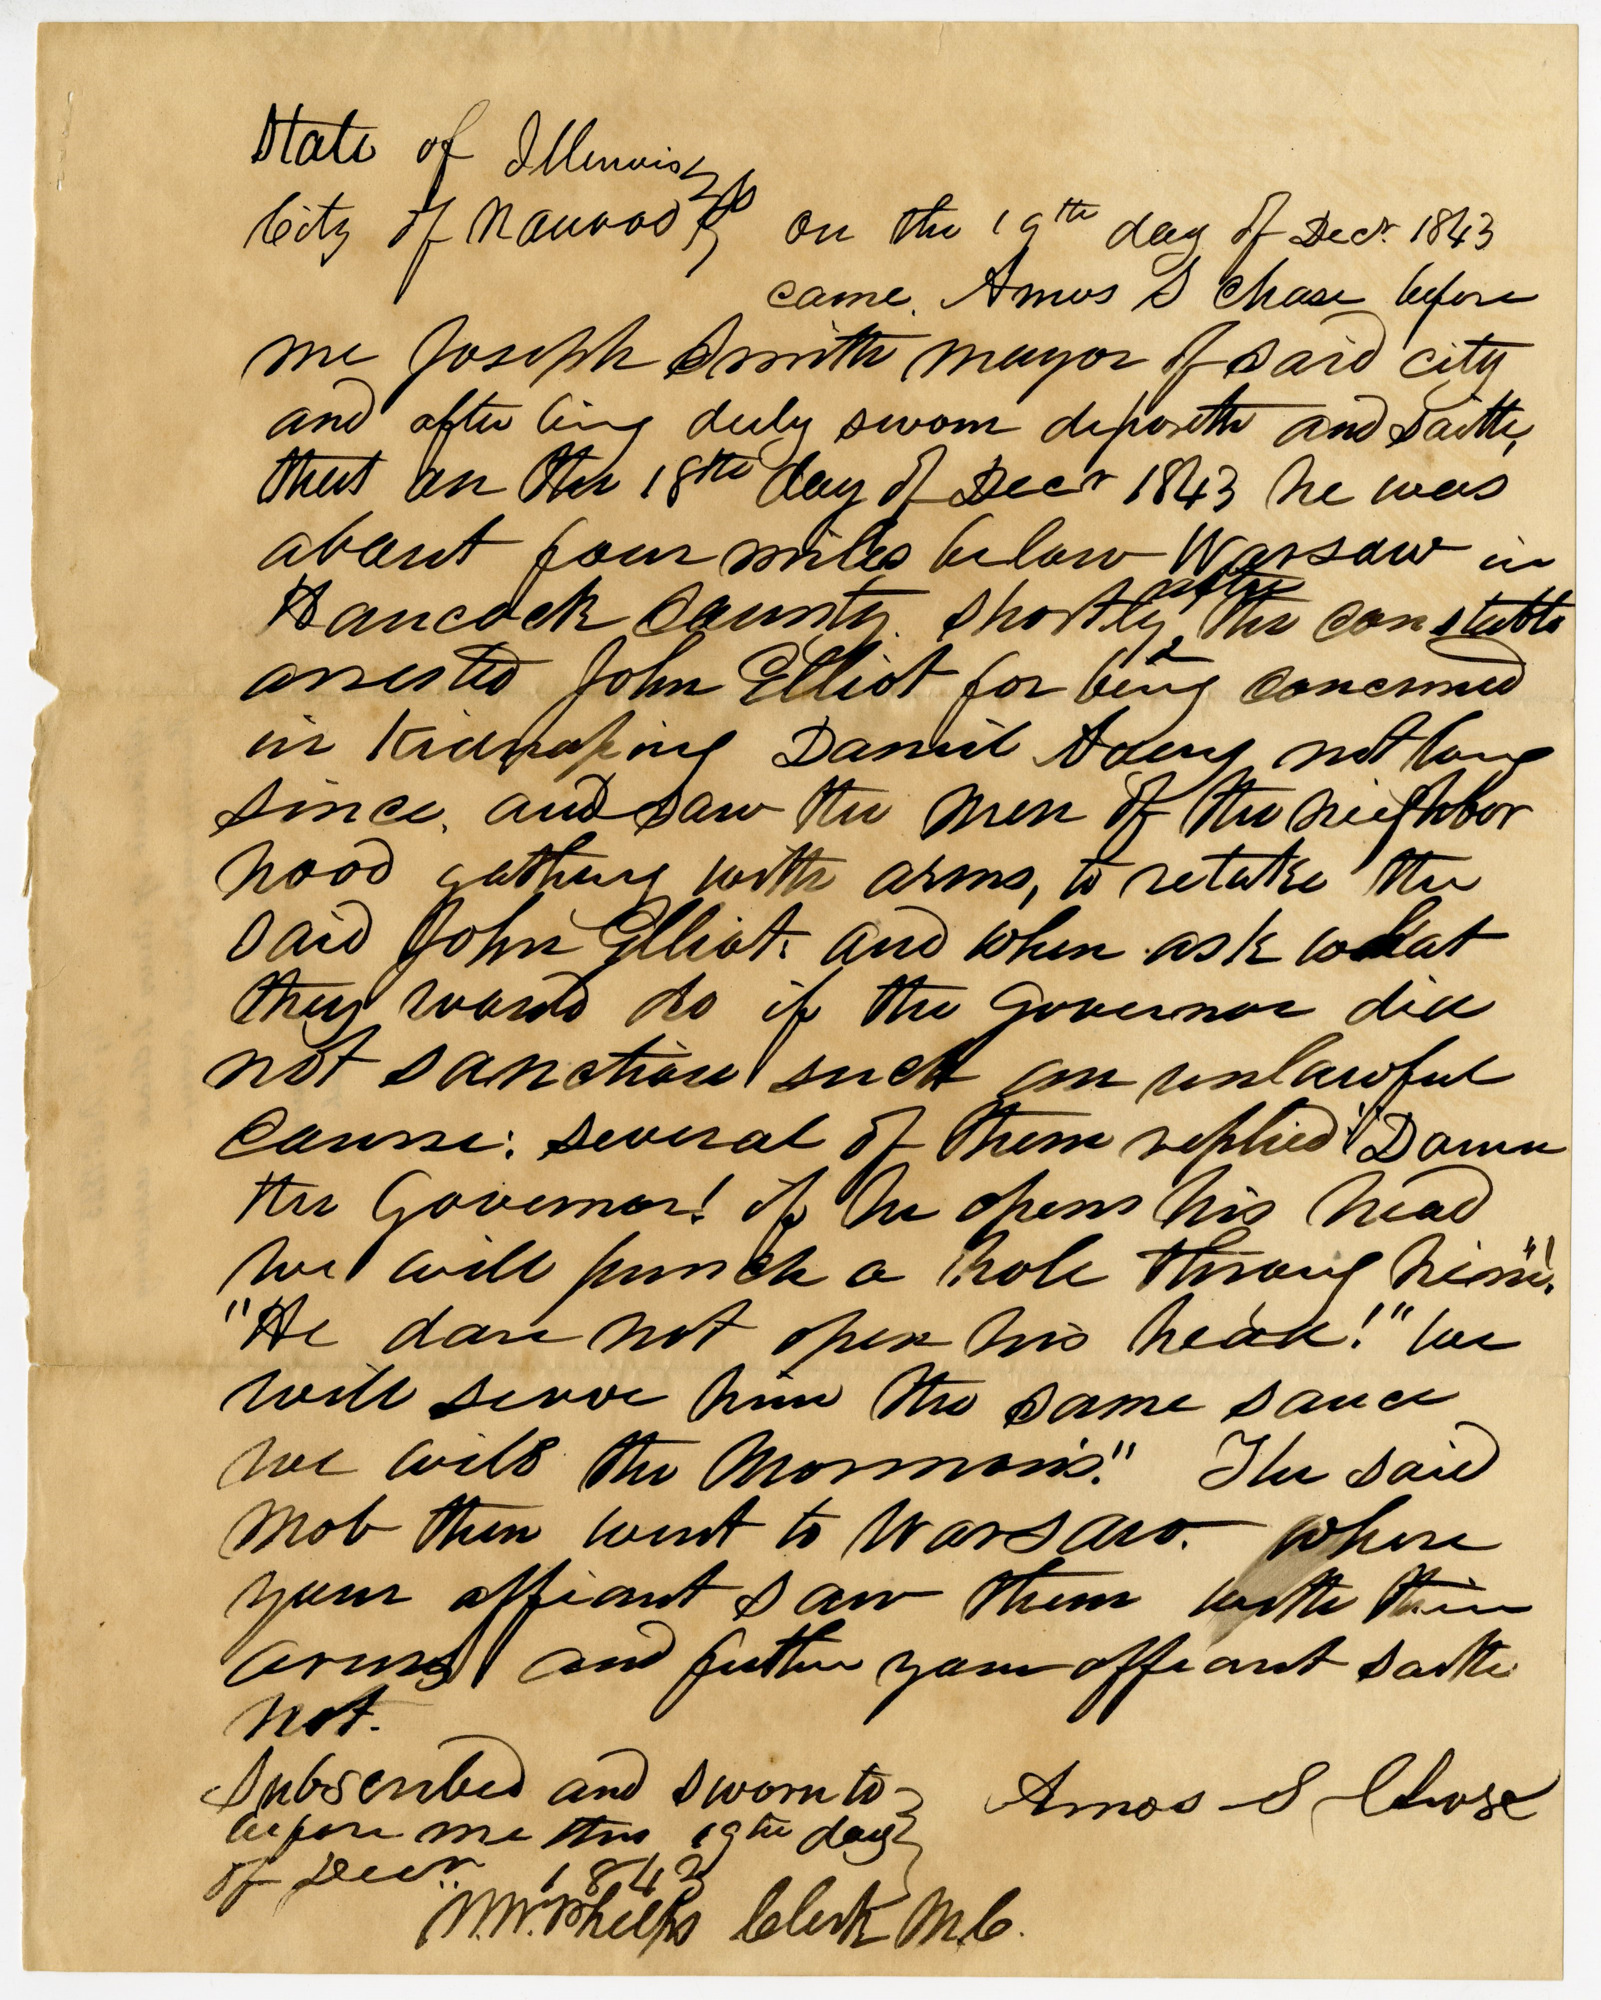 State of Illinois } ss
City of Nauvoo } on the 19th day of Decr. 1843
came. Amos S Chase before
me Joseph Smith mayor of said city
and after bing duly sworn deposeth and saith,
that on the 18th day of Decr 1843 he was
about four miles below Warsaw in
Hancock County. shortly after the constable
arrested John Elliot for being concerned
in Kidnaping Daniel Avery not long
since, and saw the men of the neighbor
hood gathering with arms, to retake the
said John Elliot. and when ask what
they would do if the Governor did
not sanction such an unlawful
course: several of them replied "Damn
the Governor! if he opens his head
we will punch a hole throug him"!
"He dare not open his head!" we
will serve him the same sauce
we will the Mormons." The said
mob then went to Warsaw. where
your affiant saw them with their
arms and further your affiant saith
not.
Subscribed and sworn to } Amos S Chase
before me this 19th day
of Decr. 1843
W. W. Phelps Clerk M.C.